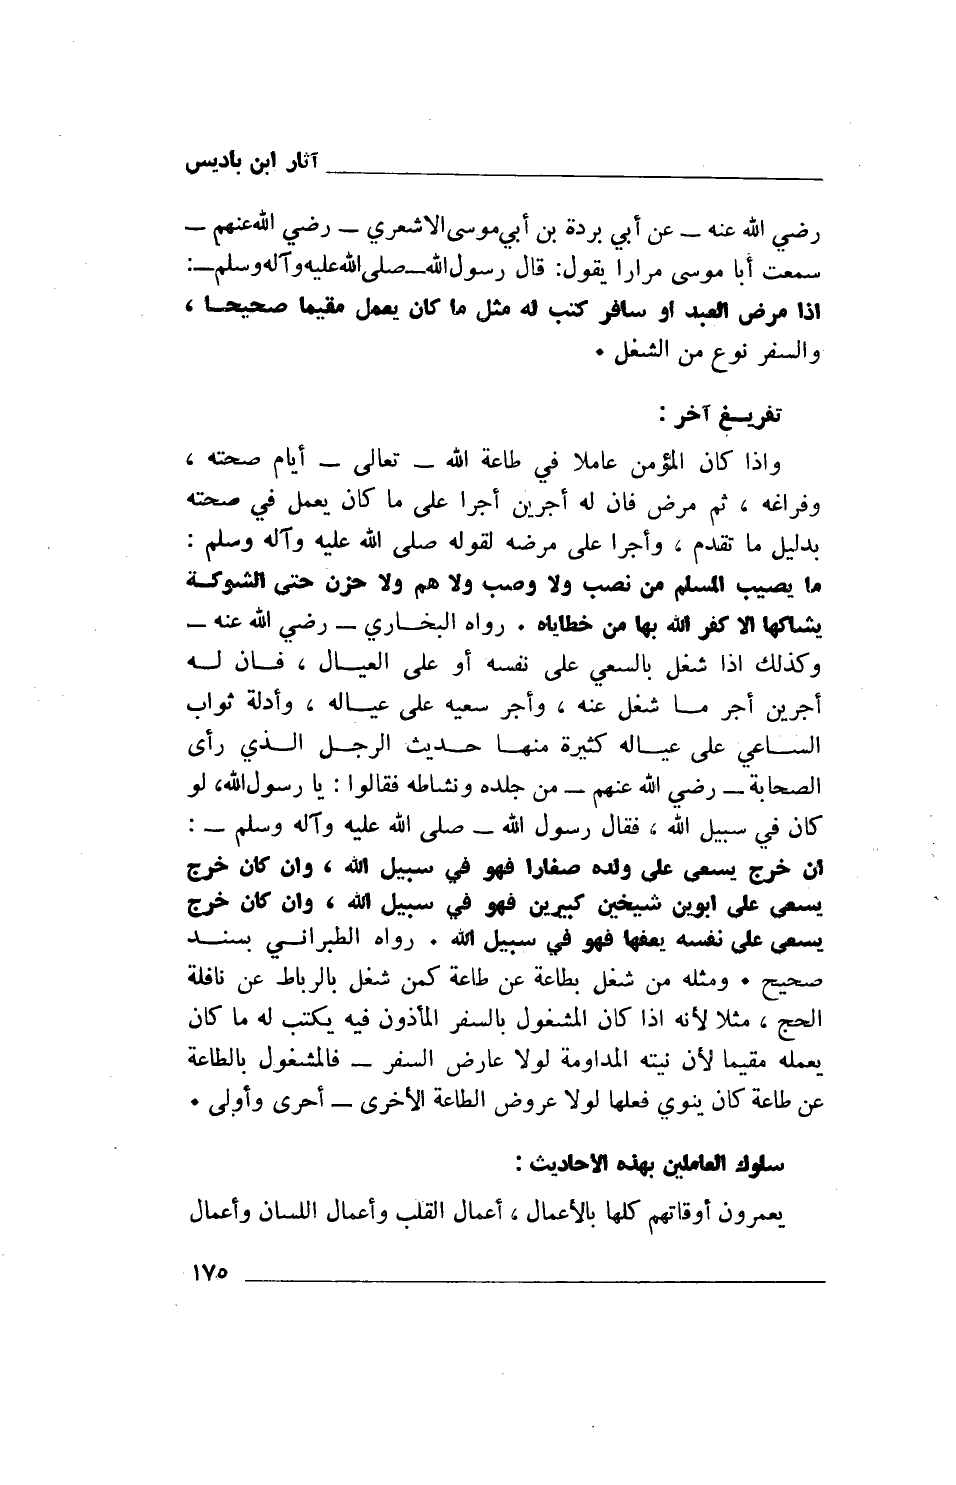 آثار ابن باديس
رضي الله عنه ــ عن أبي بردة بن أبي موسى الاشعري ــ رضي الله عنهم ــ
سمعت أبا موسى مرارا يقول: قال رسول الله ــ صلى الله عليه وآله وسلم ــ:
اذا مرض العبد او سافر كتب له مثل ما كان يعمل مقيما صحيحا ،
والسفر نوع من الشغل .
تفريغ آخر :
واذا كان المؤمن عاملا في طاعة الله ــ تعالى ــ أيام صحته ،
وفراغه ، ثم مرض فان له أجرين أجرا على ما كان يعمل في صحته
بدليل ما تقدم ، وأجرا على مرضه لقوله صلى الله عليه وآله وسلم :
ما يصيب المسلم من نصب ولا وصب ولا هم ولا حزن حتى الشوكة
يشاكها الا كفر الله بها من خطاياه . رواه البخاري ــ رضي الله عنه ــ
وكذلك اذا شغل بالسعي على نفسه أو على العيال ، فان له
أجرين أجر ما شغل عنه ، وأجر سعيه على عياله ، وأدلة ثواب
الساعي على عياله كثيرة منها حديث الرجل الذي رأى
الصحابة ــ رضي الله عنهم ــ من جلده ونشاطه فقالوا : يا رسول الله، لو
كان في سبيل الله ، فقال رسول الله ــ صلى الله عليه وآله وسلم ــ :
ان خرج يسعى على ولده صغارا فهو في سبيل الله ، وان كان خرج
يسعى على ابوين شيخين كبيرين فهو في سبيل الله ، وان كان خرج
يسعى على نفسه يعفها فهو في سبيل الله . رواه الطبراني بسند
صحيح . ومثله من شغل بطاعة عن طاعة كمن شغل بالرباط عن نافلة
الحج ، مثلا لأنه اذا كان المشغول بالسفر المأذون فيه يكتب له ما كان
يعمله مقيما لأن نيته المداومة لولا عارض السفر ــ فالمشغول بالطاعة
عن طاعة كان ينوي فعلها لولا عروض الطاعة الأخرى ــ أحرى وأولى .
سلوك العاملين بهذه الأحاديث :
يعمرون أوقاتهم كلها بالأعمال ، أعمال القلب وأعمال اللسان وأعمال
١٧٥